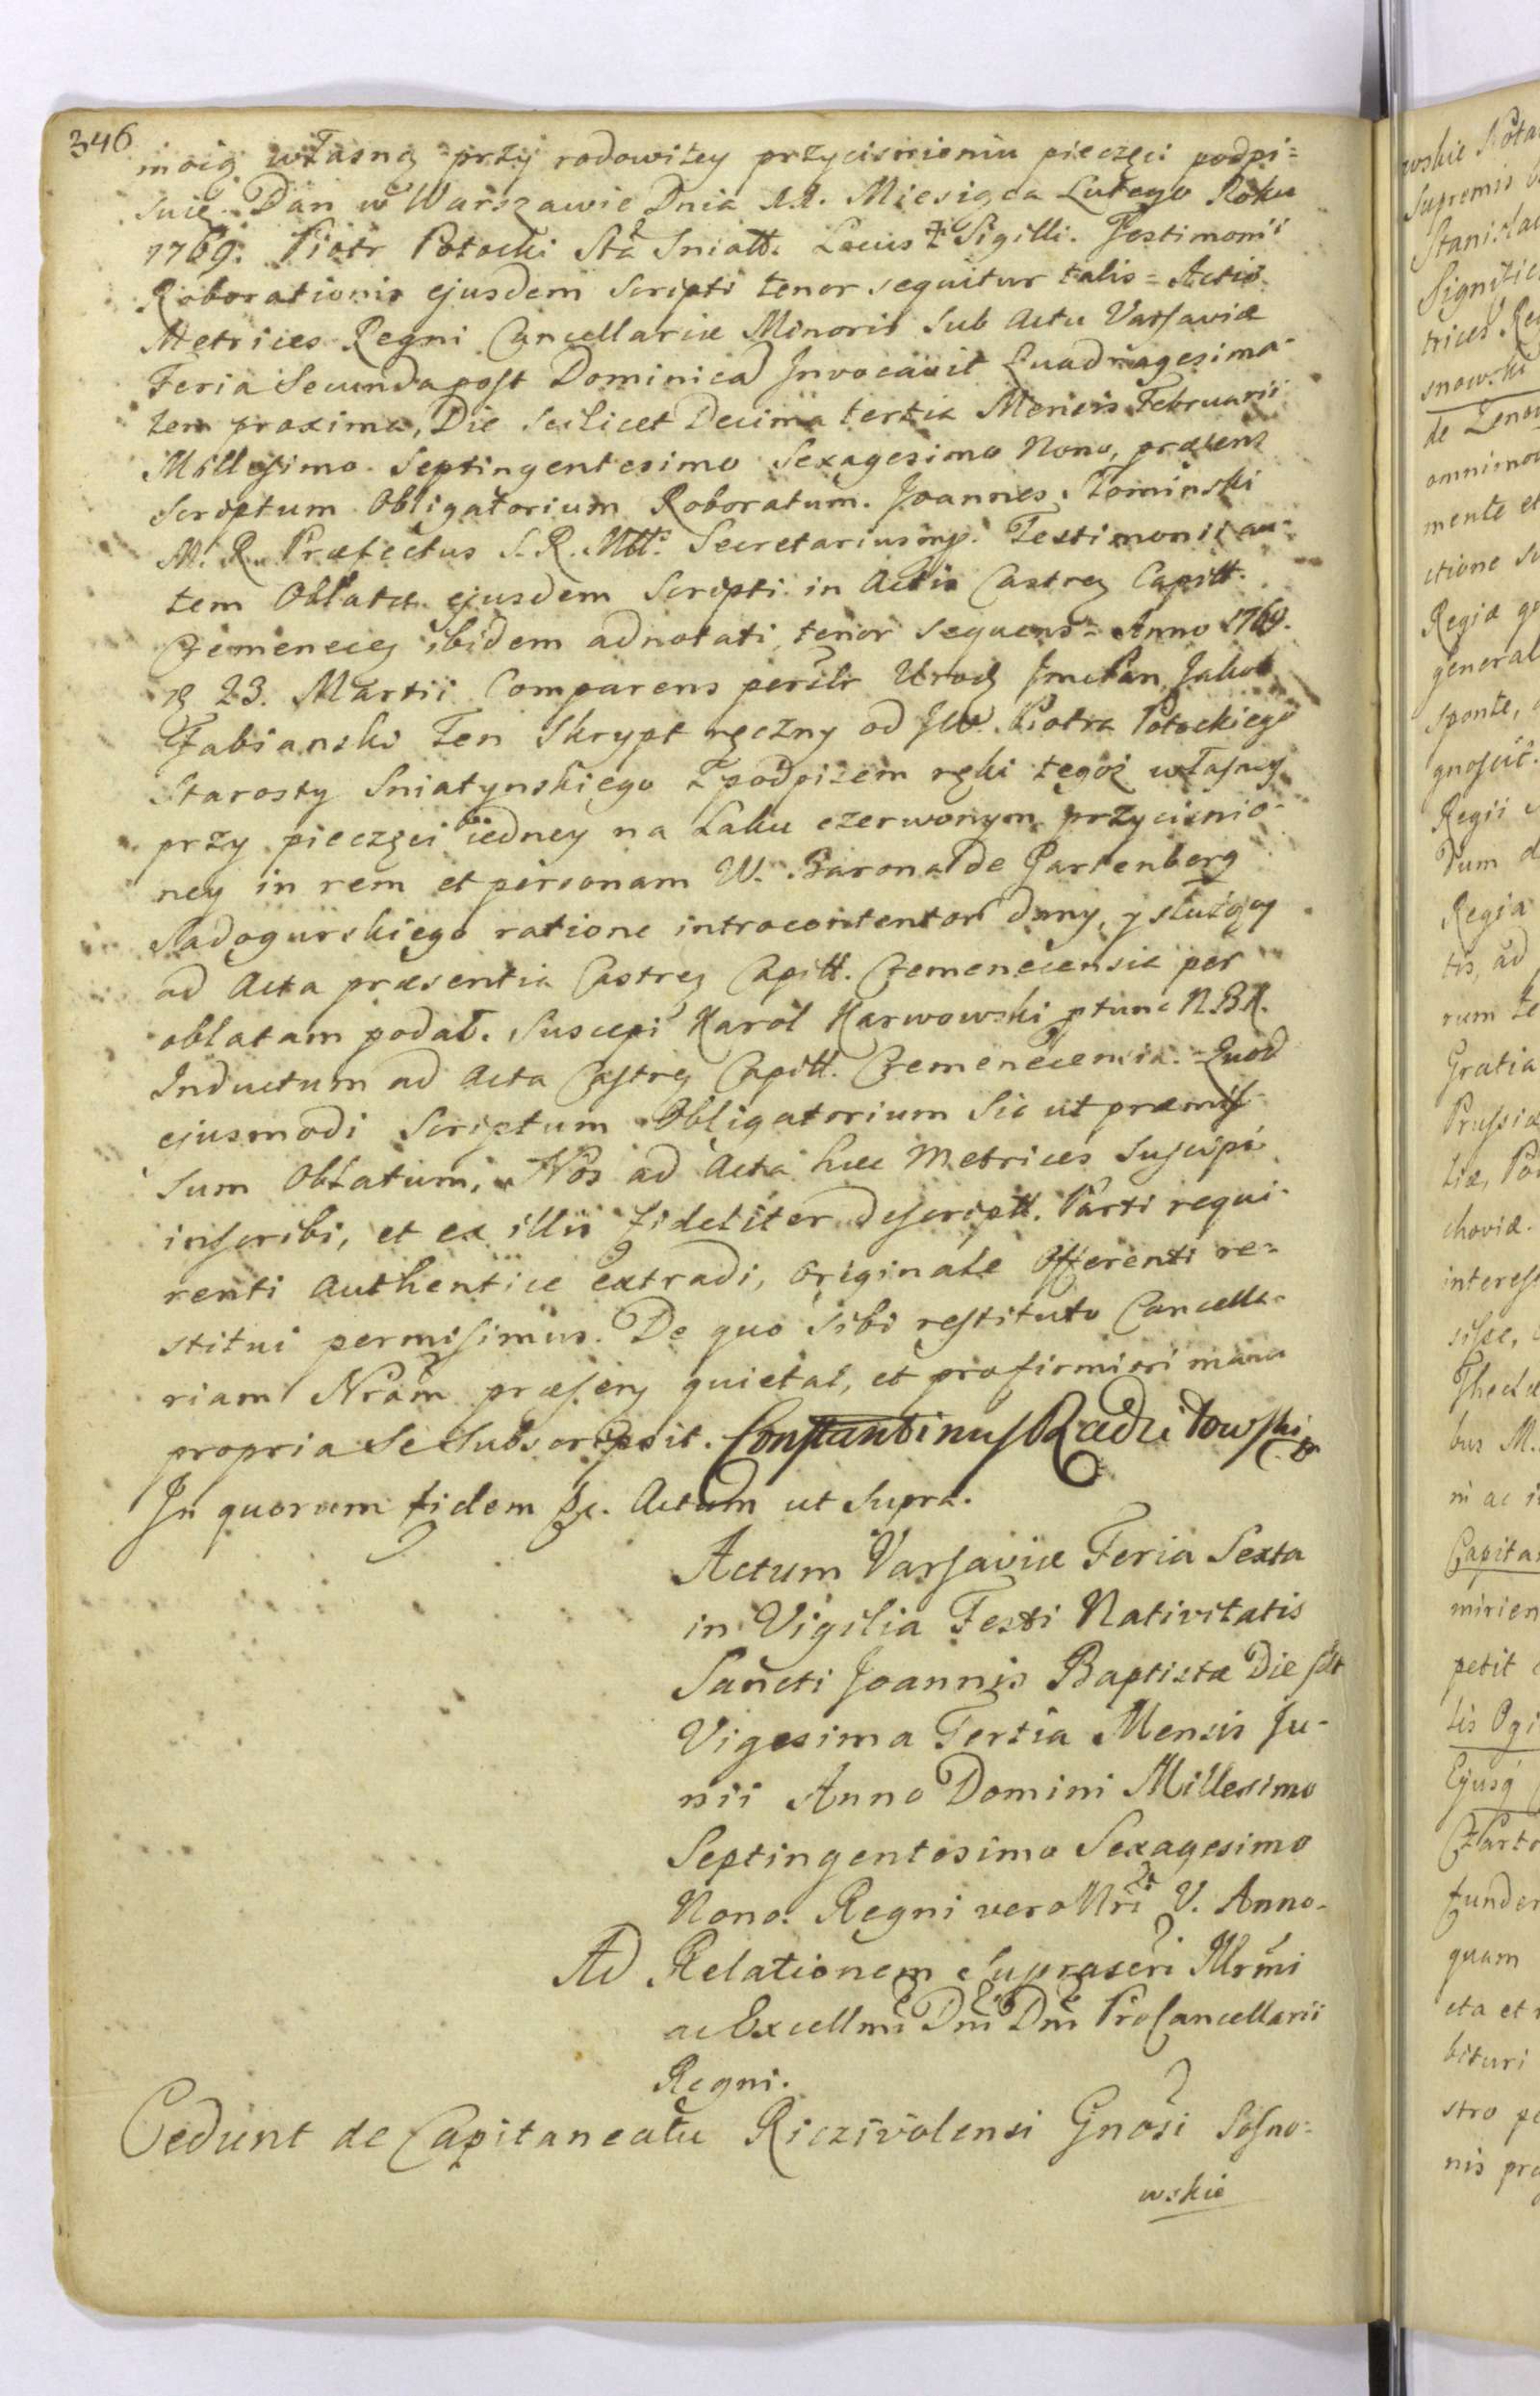 346
moią własną przy rodowitey przyciśnieniu pieczęci podpi=
suię. Dan w Warszawie Dnia 11. Miesiąca Lutego Roku
1769. Piotr Potocki Sta Sniatt. Locus Sigilli. Testimonii
Roborationis ejusdem Scripti tenor sequitur talis = Actis
Metrices Regni Cancellariæ Minoris Sub Actu Varsaviæ
Feria Secunda post Dominicã Invocavit Quadragesima-
lem proxima, Die Scilicet Decima tertia Mensis Februarii
Millesimo Septingentesimo Sexagesimo Nono, præsens
Scriptum Obligatorium Roboratum. Joannes Łominski
M. R. Præfectus S. R. Mtt. Secretarius mp. Testimonii au-
tem Oblatæ ejusdem Scripti in Actis Castreñ Capitt.
Czemeneceñ ibidem adnotati, tenor sequens = Anno 1769.
23. Martii Comparens persłr Urodz Jmć Pan Jakob
Fabianski Ten Skrypt ręczny od JW. Piotra Potockiego
Starosty Sniatynskiego z podpisem ręki tegoż własney
przy pieczęci iedney na Laku czerwonym przyciśnio-
ney in rem et personam W. Barona de Gartenberg
Sadogurskiego ratione introcontentor dany, y służący
ad Acta præsentia Castreñ Capitt. Czemenecensia per
oblatam podał. Suscepi Karol Karwowski ptunc N.B.K.
Inductum ad Acta Castreñ Capitt. Czemenecensia. = Quod
ejusmodi Scriptum Obligatorium Sic ut præmis-
sum Oblatum, Nos ad Acta hæc Metrices Suscipi
inscribi, et ex illis fideliter descriptt. Parti requi-
renti Authentice extradi, originale Offerenti re-
stitui permisimus. De quo sibi restituto Cancella-
riam Nrãm præsenñ quietat, et pro firmiori manu
propria se subscripsit. Constantinus Radzitowski
In quorum fidem &c. Actum ut Supra.
Actum Varsaviæ Feria Sexta
in Vigilia Festi Nativitatis
Sancti Joannis Baptistæ Die sclt
Vigesima Tertia Mensis Ju-
nii Anno Domini Millesimo
Septingentesimo Sexagesimo
Nono. Regni vero Nri V. Anno.
Ad Relationem Suprascri Illrmi
ac Excellmi Dni Dni ProCancellarii
Regni.
Cedunt de Capitaneatu Riczivolensi Gnosi Sosno=
wskie